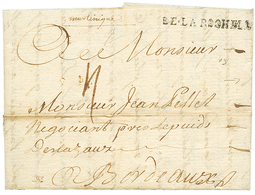 martinique
DE.LAROCHELLE
A Monsieur
4
Monsieur Jean Pellet
Negociant pres le puids
de
A Bordeaux